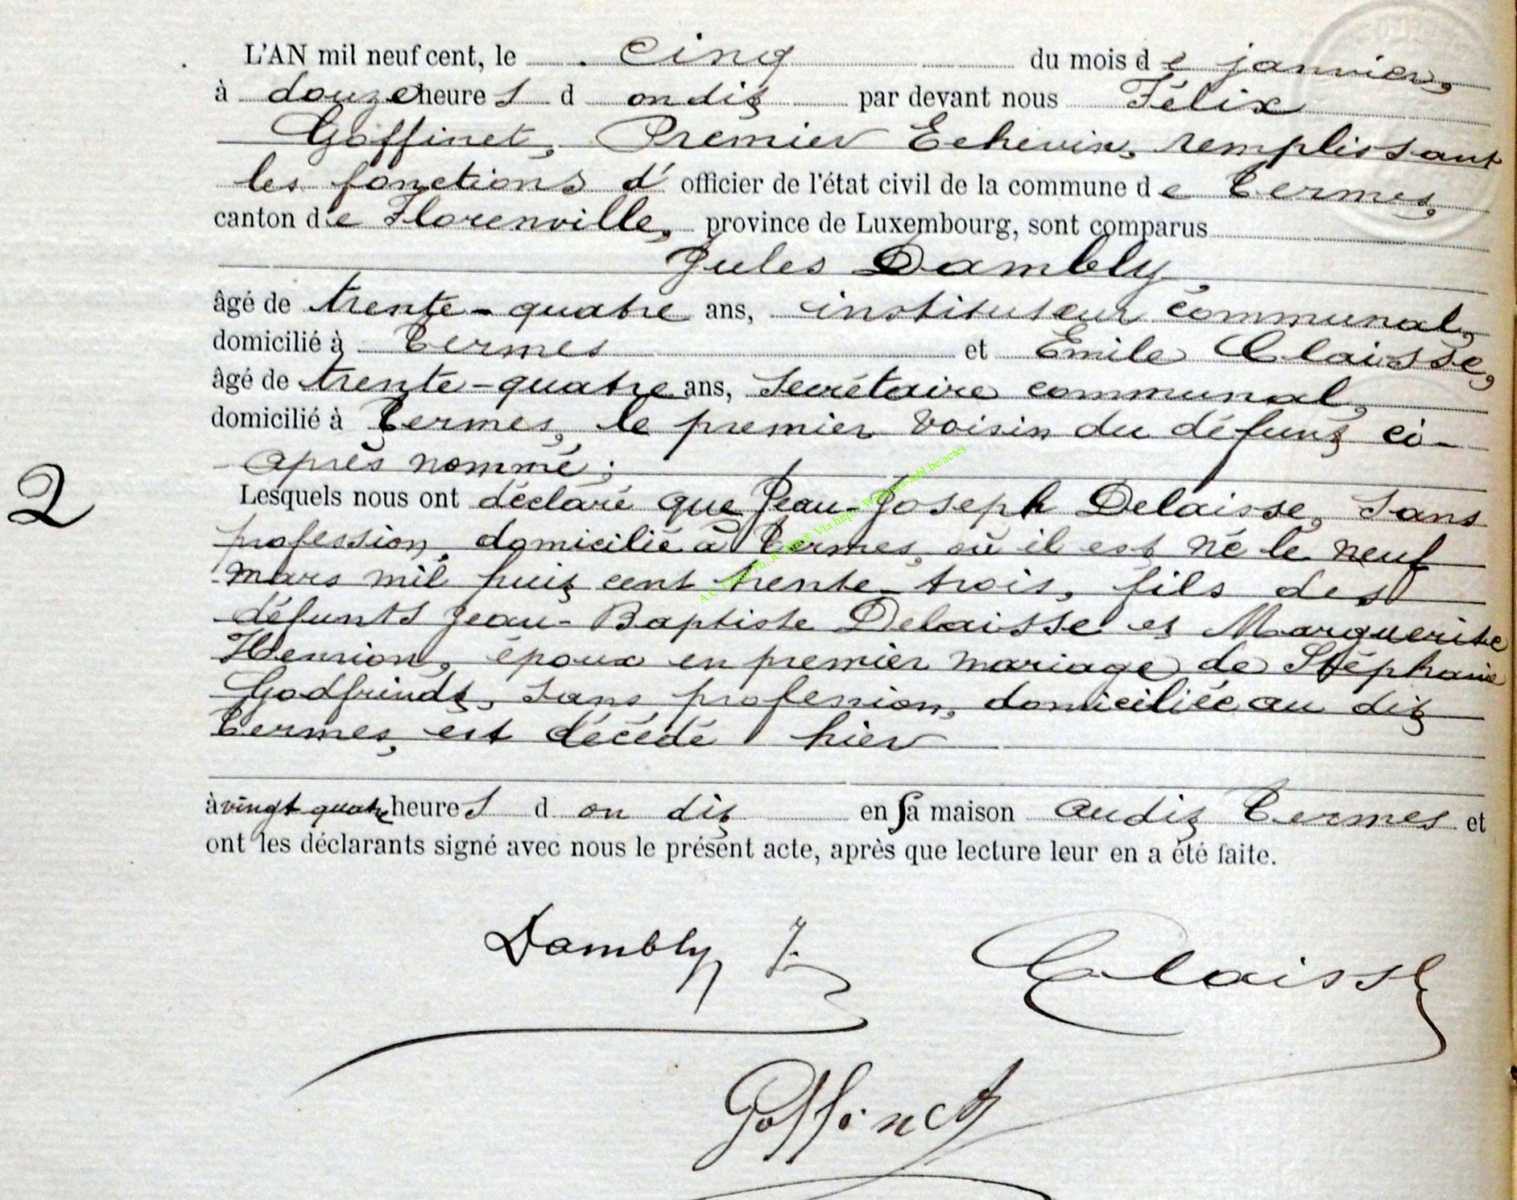 L'AN mil neuf cent, le cinq du mois de janvier,
à douze heures d on dit par devant nous Félix
Goffinet, Premier Echevin, remplissant
les fonctions d' officier de l'état civil de la commune de Termes,
canton de Florenville, province de Luxembourg, sont comparus
Jules Dambly,
âgé de trente-quatre ans, instituteur communal,
domicilié à Termes et Emile Claisse,
âgé de trente-quatre ans, secrétaire communal,
domicilié à Termes, le premier voisin du défunt ci-
après nommé;
2
Lesquels nous ont déclaré que Jean-Joseph Delaisse, sans
profession, domicilié à Termes, où il est né le neuf
mars mil huit cent trente-trois, fils des
défunts Jean-Baptiste Delaisse et Marguerite
Henrion, époux en premier mariage de Stéphanie
Godfrindt, sans profession, domiciliée au dit
Termes, est décédé hier
à vingt quatre heures d on dit en sa maison audit Termes et
ont les déclarants signé avec nous le présent acte, après que lecture leur en a été faite.
Dambly J.
Claisse
Goffinet